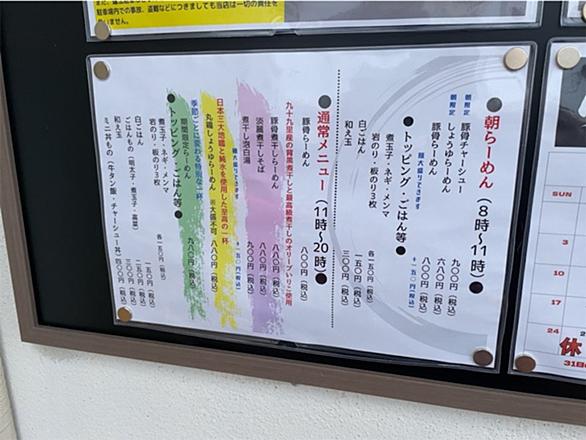 駐車場内での事故、盗難などにつきましても当店は一切の責任を
●朝らーめん(8時～11時)●
朝限定 豚骨チャーシュー 九〇〇円(税込)
朝限定 しょうゆらーめん 六八〇円(税込)
豚骨らーめん 八〇〇円(税込)
麺大盛りできます +一五〇円(税込)
●トッピング・ごはん等●
煮玉子・ネギ・メンマ
岩のり・板のり3枚 各一五〇円(税込)
白ごはん 一五〇円(税込)
和え玉 三〇〇円(税込)
●通常メニュー(11時～20時)●
豚骨らーめん 八〇〇円(税込)
九十九里産の背黒煮干しと最高級煮干しのオリーブいりこ使用
豚骨煮干しらーめん 八八〇円(税込)
淡麗煮干しそば 八八〇円(税込)
煮干し泡白湯 九〇〇円(税込)
麺大盛りできます +一五〇円(税込)
日本三大地鶏と純水を使用した至高の一杯
丸鶏しょうゆらーめん ※大盛不可 八八〇円(税込)
季節ごとに変わる特別な一杯
期間限定らーめん 九八〇円(税込)
●トッピング・ごはん等●
煮玉子・ネギ・メンマ
岩のり・板のり3枚 各一五〇円(税込)
白ごはん 一五〇円(税込)
ごはんもの(明太子・煮玉子・高菜) 三〇〇円(税込)
和え玉 三〇〇円(税込)
ミニ丼もの(牛タン飯・チャーシュー丼) 四〇〇円(税込)
SUN
3
10
17
24
休
31日